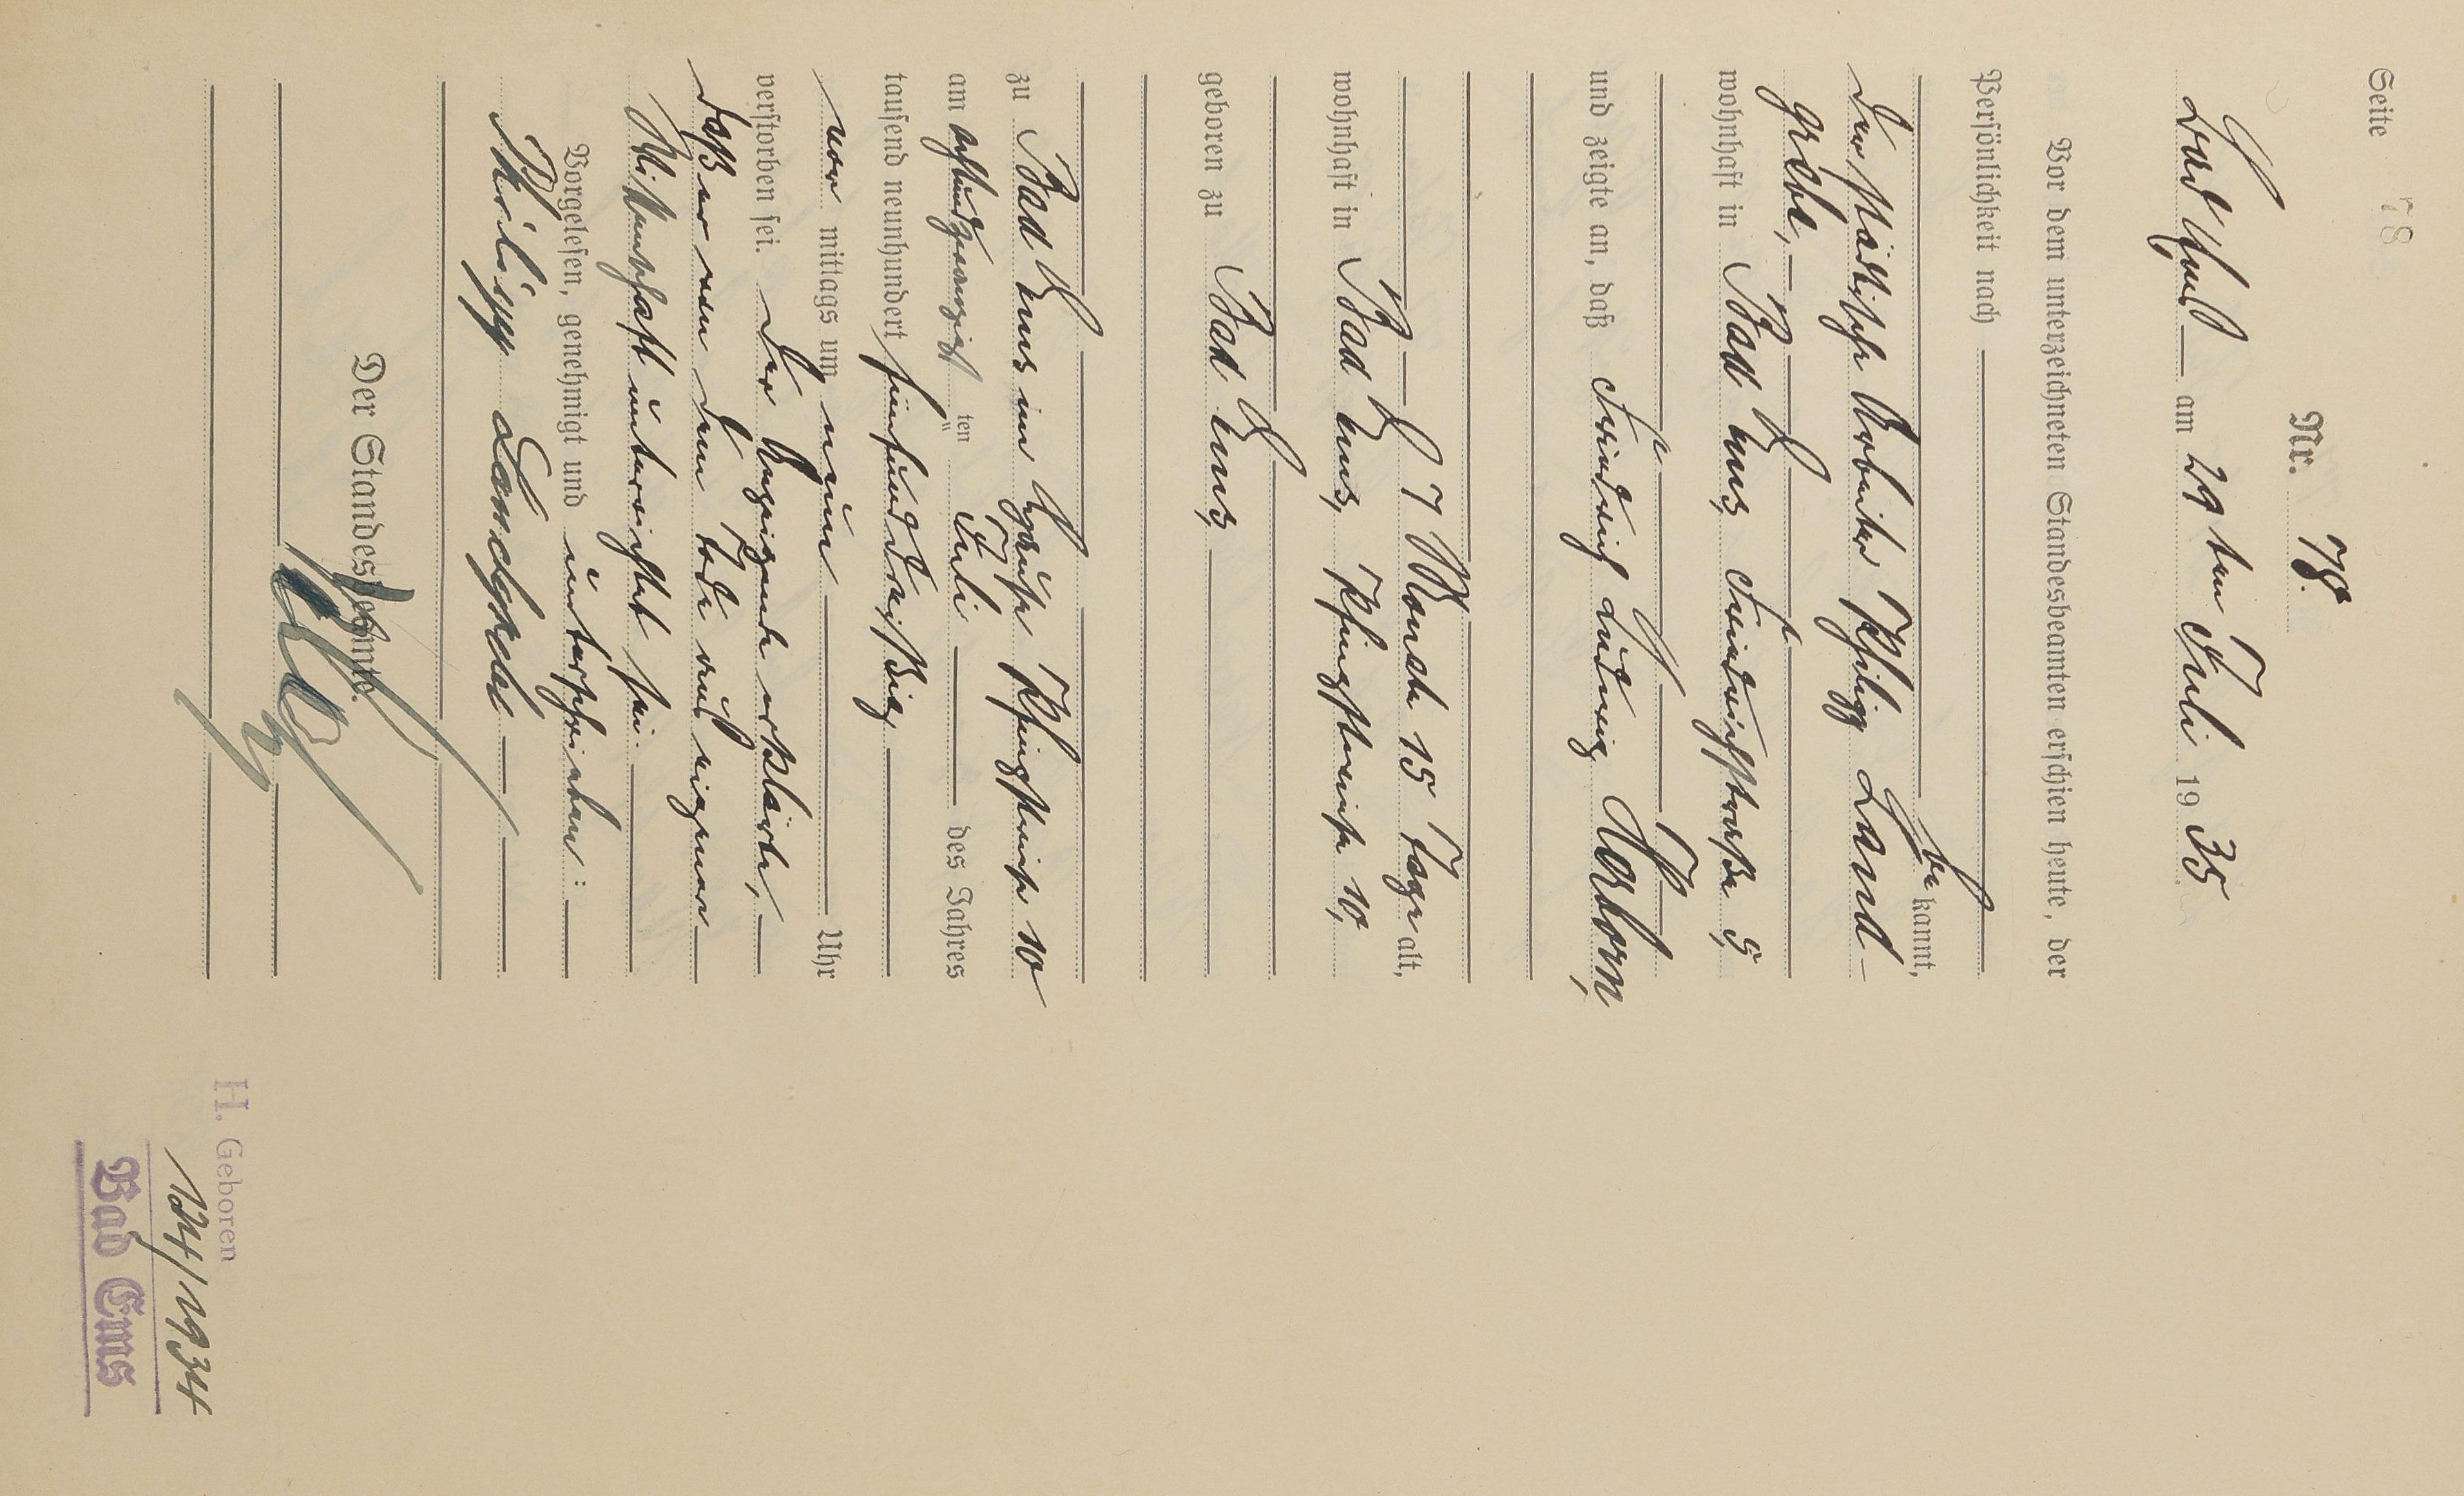 Seite 78
Nr. 78.
Bad Ems am 29 ten Juli 1935
Vor dem unterzeichneten Standesbeamten erschien heute, der
Persönlichkeit nach
be kannt,
der städtische Arbeiter Philipp Land-
grebe,
wohnhaft in Bad Ems, Friedrichstraße 5,
und zeigte an, daß Friedrich Ludwig Herborn,
7 Monate 15 Tage alt,
wohnhaft in Bad Ems, Pfingstwiese 10,
geboren zu Bad Ems,
zu Bad Ems im Hause Pfingstwiese 10
am achtundzwanzigsten Juli des Jahres
tausend neunhundert fünfunddreißig
vor mittags um neun Uhr
verstorben sei. Der Anzeigende erklärte,
daß er von dem Tode aus eigener
Wissenschaft unterrichtet sei.
Vorgelesen, genehmigt und unterschrieben:
Philipp Landgrebe
Der Standesbeamte.
H. Geboren
124/1934
Bad Ems